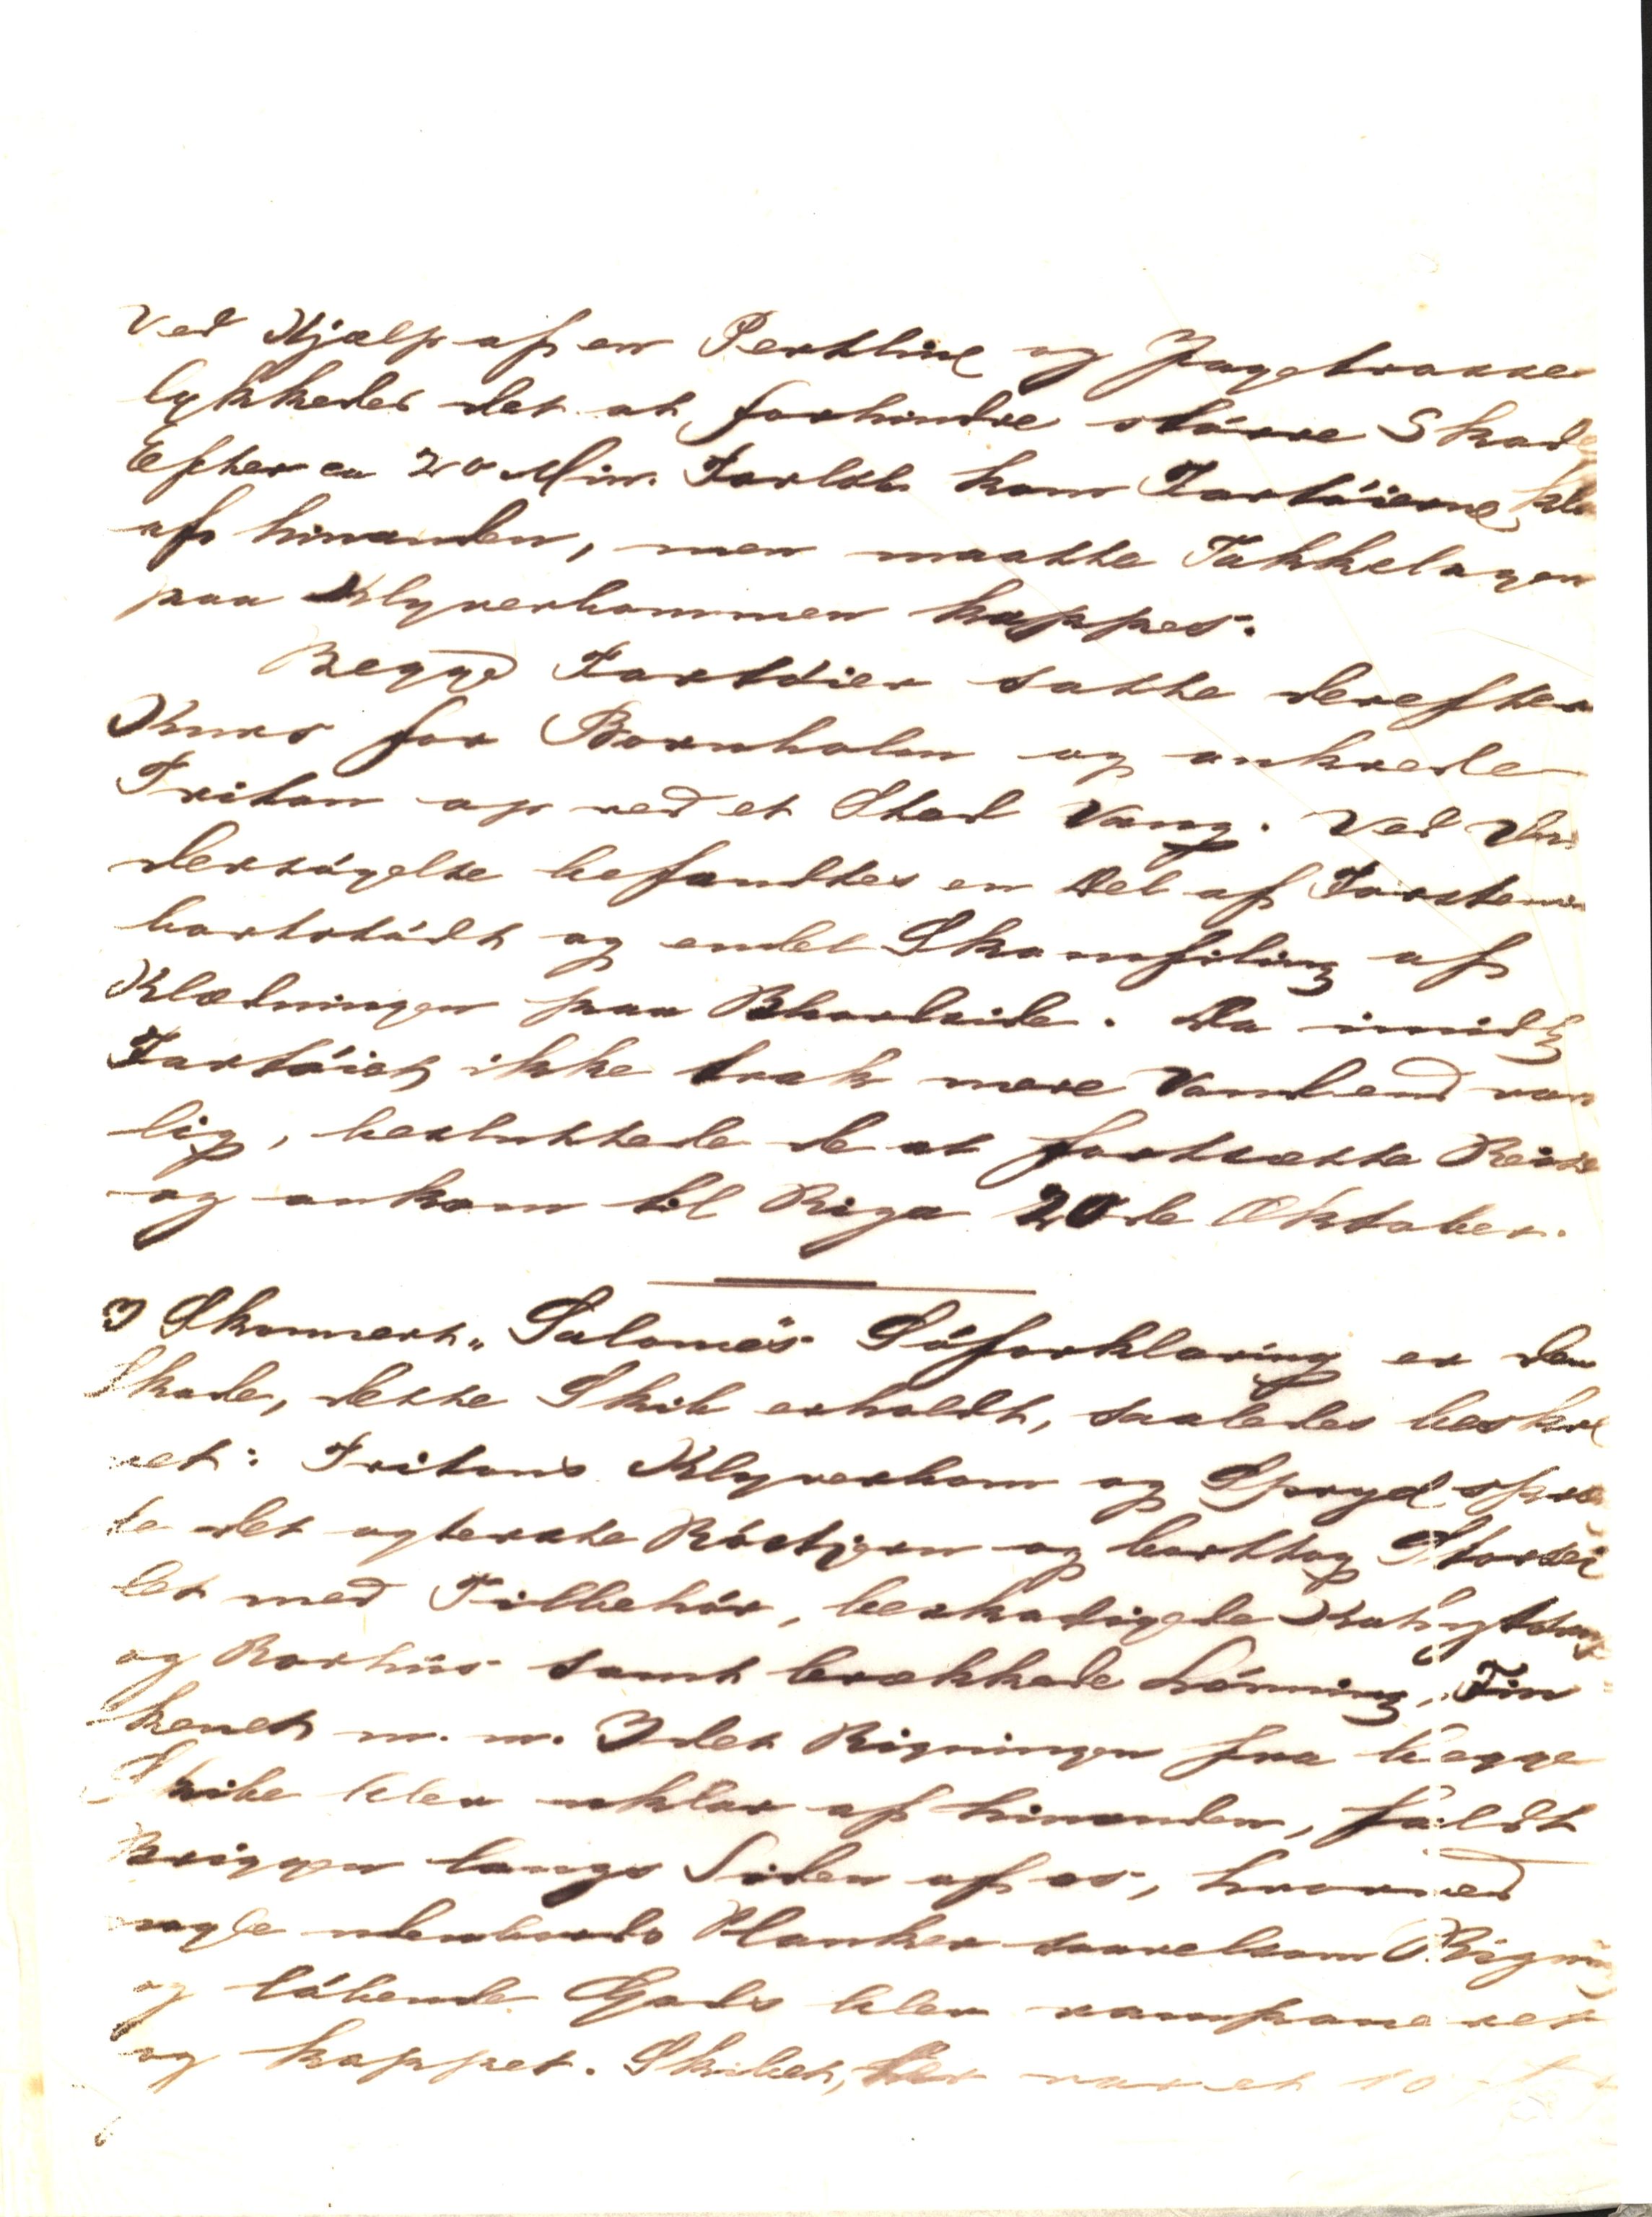 Ved Hjælp af en Pertline og Jagetrosser
lykkedes det at forhindre större Skade
Efter ca 20 Min. Forlöb kom Fartöierne kla
af hinanden, men maatte Takkelagen
paa Klyverbommen kappes.
Begge Fartöier satte derefter
Kurs for Bornholm og ankrede
Triton op ved et Sted Vang. Ved Un
dersögelse befandtes en Del af Forsteven
bortstödt og endel Skamfiling af
Klædningen paa Bbordside. Da imidl
Fartöiet ikke trak mere Vand end van
lig, besluttede de at fortsætte Reise
og ankom til Riga 20de Oktober.
I Skonnert „Salome's Söforklaring er den
Skade, dette Skib erholdt, saaledes beskre
vet: Tritons Klyverbom og Spryd
te det agterste Röstjern og borttog Storsei
let med Tilbehör, beskadigede
og Rorhus samt brækkede Lönning, Fin
kenet m. m. Idet Rigningen fra begge
Skibe blev uklar af hinanden, faldt
Briggen langs Siden af os, hvorved
nogle udenbords Planker saavelsom Rigning
og löbende Gods blev ramponeret
og kappet. Skibet, der var et 10